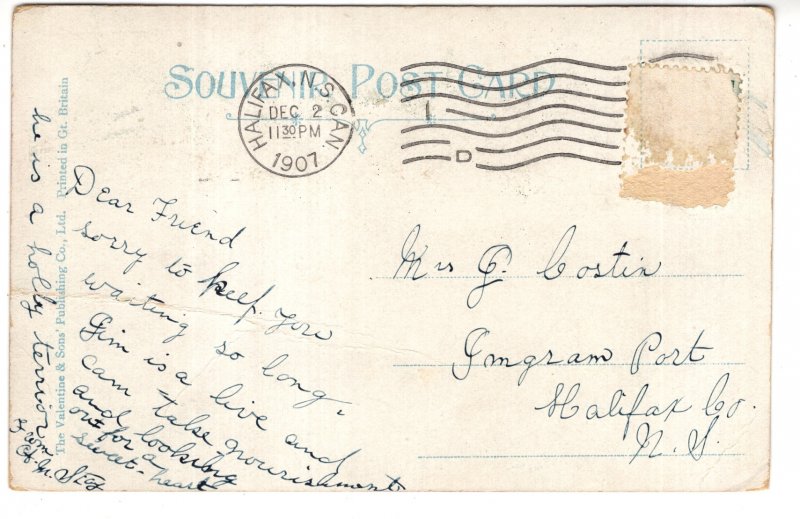 SOUVENIR POST CARD
HALIFAX, N.S. CAN.
DEC 2
11 30 PM
1907
D
Dear Friend
sorry to keep you
waiting so long.
Gim is a live and
can take nourishment
and looking
out for a
sweet-heart
he is a holly terrior
from
M.
Mrs P. Costin
Imgram Port
Halifax Co.
N. S.
The Valentine & Sons' Publishing Co., Ltd. Printed in Gt. Britain